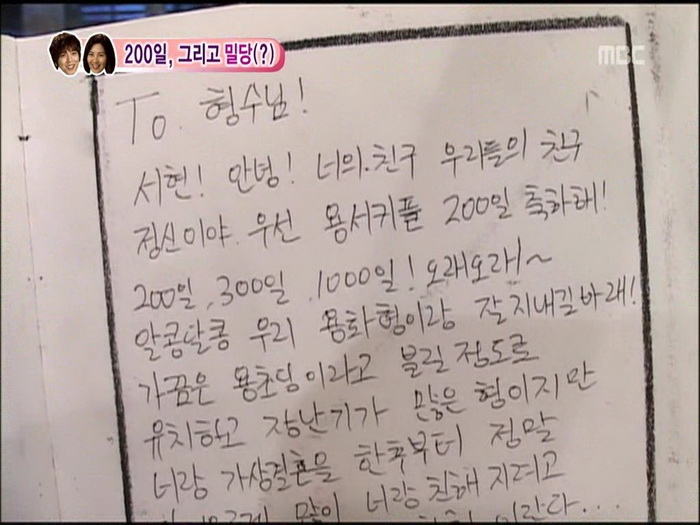 200일, 그리고 밀당(?)
MBC
To. 형수님!
서현! 안녕! 너의.친구 우리들의 친구
정신이야. 우선 용서커플 200일 축하해!
200일, 300일, 1000일! 오래오래~
알콩달콩 우리 용화형이랑 잘지내길바래!
가끔은 용초딩이라고 불릴 정도로
유치하고 장난기가 많은 형이지만
너랑 가상결혼을 한후부터 정말
많이 너랑 친해지려고